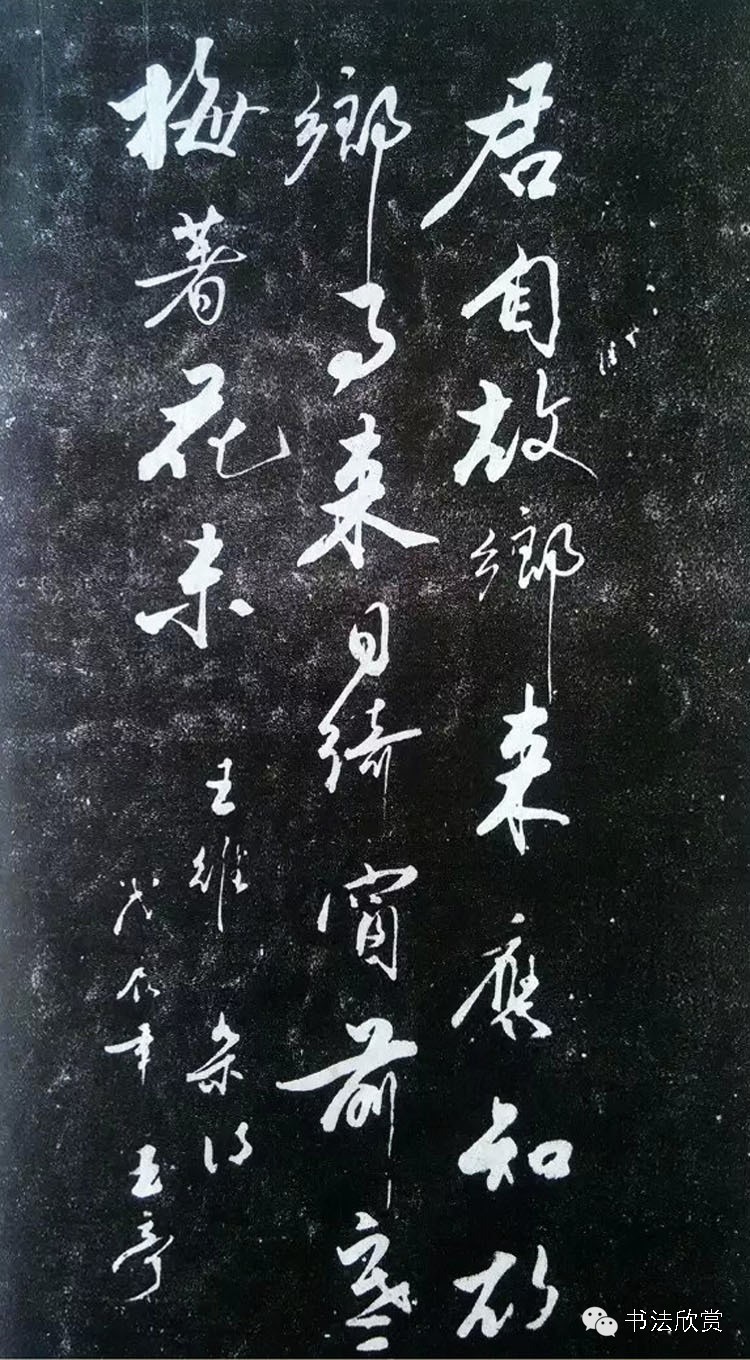 君自故鄉来應知故
鄉事来日綺窗前寒
梅著花未
王維 杂诗
戊辰年 王
书法欣赏